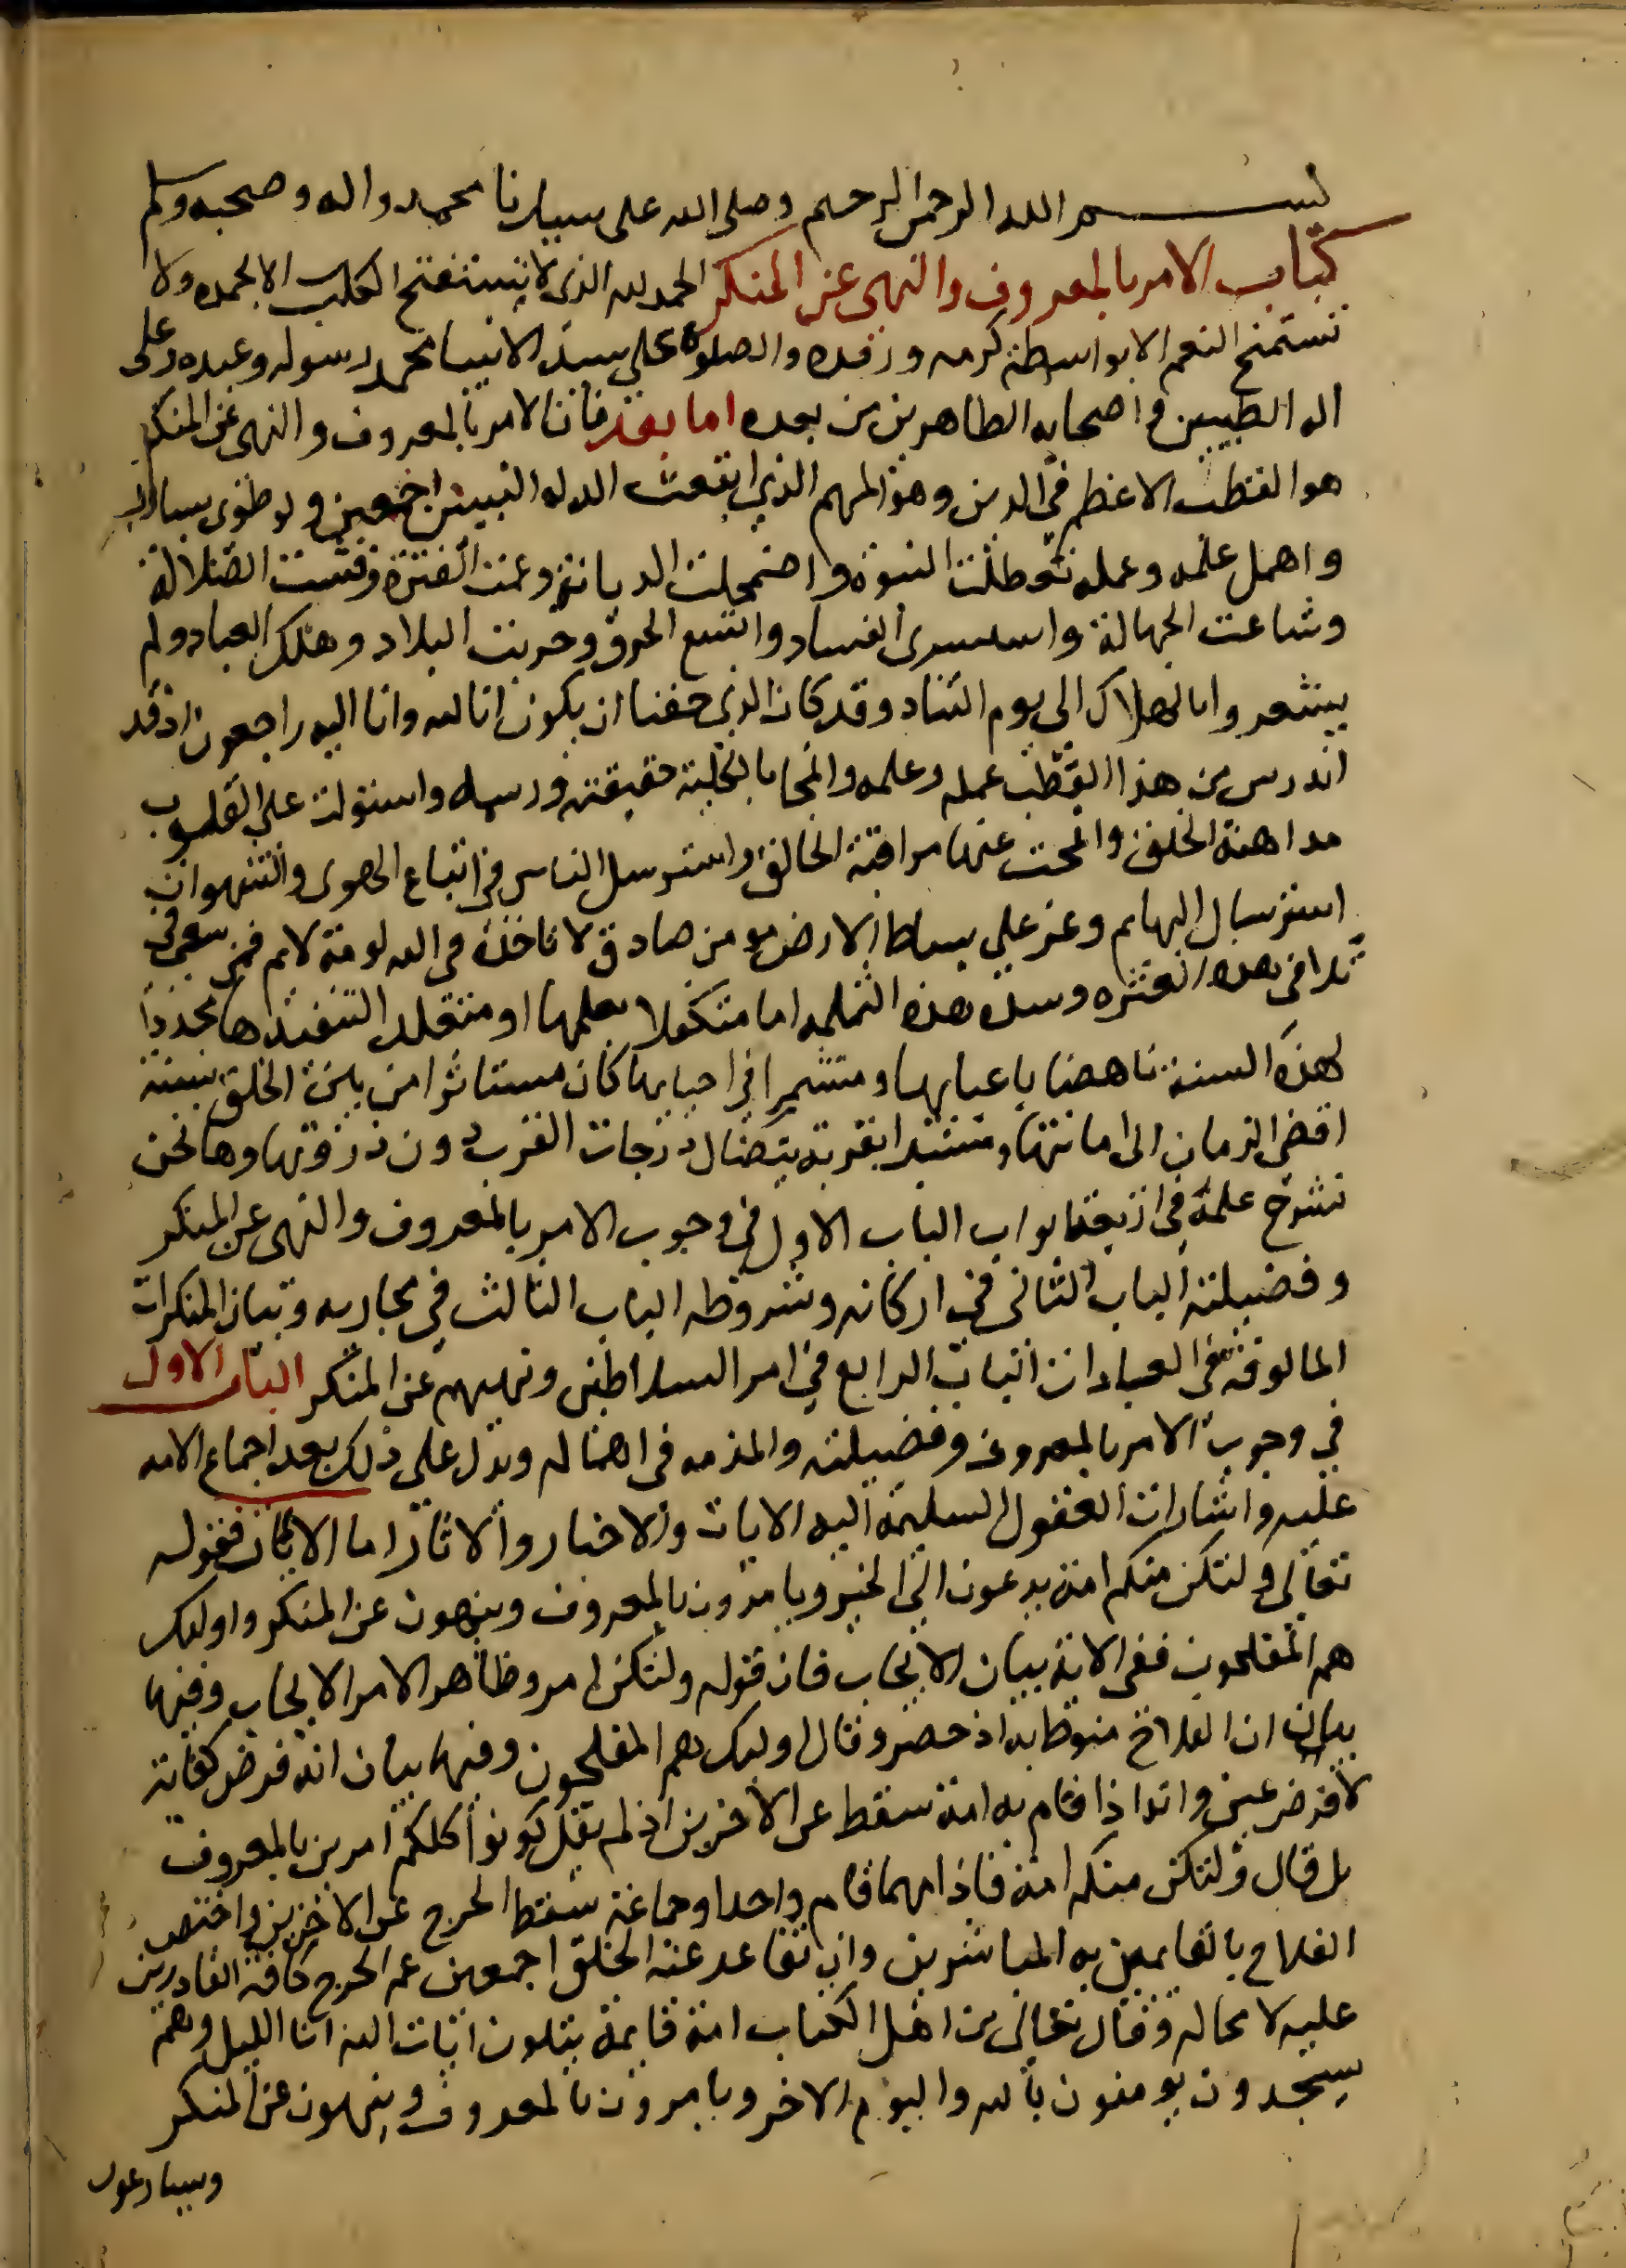 بسم الله الرحمن الرحيم وصلى الله على سيدنا محمد واله وصحبه وسلم
كتاب الامر بالمعروف والنهى عن المنكر الحمد لله الذى لا تستفتح الكتب الا بحمده ولا
تستمنح النعم الا بواسطة كرمه ورفده والصلوة على سيد الانبيا محمد رسوله وعبده وعلى
اله الطيبين واصحابه الطاهرين من بعده اما بعد فان الامر بالمعروف والنهى عن المنكر
هو القطب الاعظم فى الدين وهو المهم الذى ابتعث الله له النبيين اجمعين ولو طوى بساطه
واهمل علمه وعمله تعطلت النبوة واضمحلت الديانة وعمت الفترة وفشت الضلالة
وشاعت الجهالة واستسرى الفساد واتسع الخرق وخربت البلاد وهلك العباد ولم
يشعروا بالهلاك الى يوم التناد وقد كان الذى خفنا ان يكون انا لله وانا اليه راجعون اذ قد
اندرس من هذا القطب عمله وعلمه وانمحا بالكلية حقيقته ورسمه واستولت على القلوب
مداهنة الخلق وانمحت عنها مراقبة الخالق واسترسل الناس فى اتباع الهوى والشهوات
استرسال البهايم وعز على بساط الارض مومن صادق لا تاخذه فى الله لومة لايم فمن سعى فى
تلافى هذه الفترة وسد هذه الثلمه اما متكفلا بعلمها او متقلدا لتنفيذها مجددا
لهذه السنة ناهضا باعبايها ومتشمرا فى احيايها كان مستاثرا من بين الخلق بسنة
افضى الزمان الى اماتتها ومستبدا بقربة يتضال درجات القرب دون ذروتها وها نحن
نشرح علمه فى اربعة ابواب الباب الاول فى وجوب الامر بالمعروف والنهى عن المنكر
وفضيلته الباب الثانى فى اركانه وشروطه الباب الثالث فى مجاريه وبيان المنكرات
المالوفة فى العبادات الباب الرابع فى امر السلاطين ونهيهم عن المنكر الباب الاول
فى وجوب الامر بالمعروف وفضيلته والمذمه فى اهماله ويدل على ذلك بعد اجماع الامه
عليه واشارات العقول السليمة اليه الايات والاخبار والاثار اما الايات فقوله
تعالى ولتكن منكم امة يدعون الى الخير ويامرون بالمعروف وينهون عن المنكر واوليك
هم المفلحون ففى الاية بيان الايجاب فان قوله ولتكن امر وظاهر الامر الايجاب وفيها
بيان ان الفلاح منوط به اذ حصر وقال اوليك هم المفلحون وفيها بيان انه فرض كفاية
لا فرض عين وانه اذا قام به امة سقط عن الاخرين اذ لم يقل كونوا كلكم امرين بالمعروف
بل قال ولتكن منكم امة فاذا مهما قام واحد او جماعة سقط الحرج عن الاخرين واختص
الفلاح بالقايمين به المباشرين وان تقاعد عنه الخلق اجمعين عم الحرج كافة القادرين
عليه لا محاله وقال تعالى من اهل الكتاب امة قايمة يتلون ايات الله انا الليل وهم
يسجدون يومنون بالله واليوم الاخر ويامرون بالمعروف وينهون عن المنكر
ويسارعون